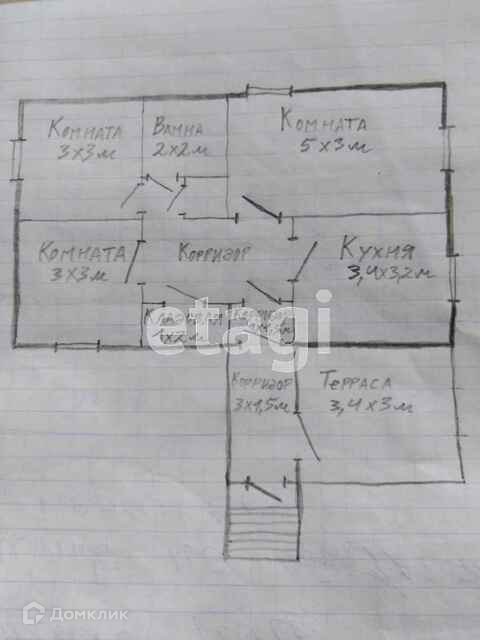 Комната
3х3м
Ванна
2х2м
Комната
5х3м
Комната
3х3м
Корридор
Кухня
3,4х3,2м
Кладовая
1х2м
etagi
Корридор
3х1,5м
Терраса
3,4х3м
Домклик